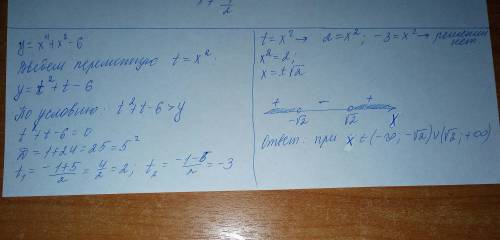 y = x⁴ + x² - 6
Введем переменную t = x².
y = t² + t - 6
По условию: t² + t - 6 > y
t² + t - 6 = 0
D = 1 + 24 = 25 = 5²
t₁ = -1+5/2 = 4/2 = 2; t₂ = -1-5/2 = -3
t = x² → 2 = x²; -3 = x² → решений нет.
x² = 2;
x = ±√2
+ - +
-√2 √2 x
Ответ: при x ∈ (-∞; -√2) ∪ (√2; +∞)